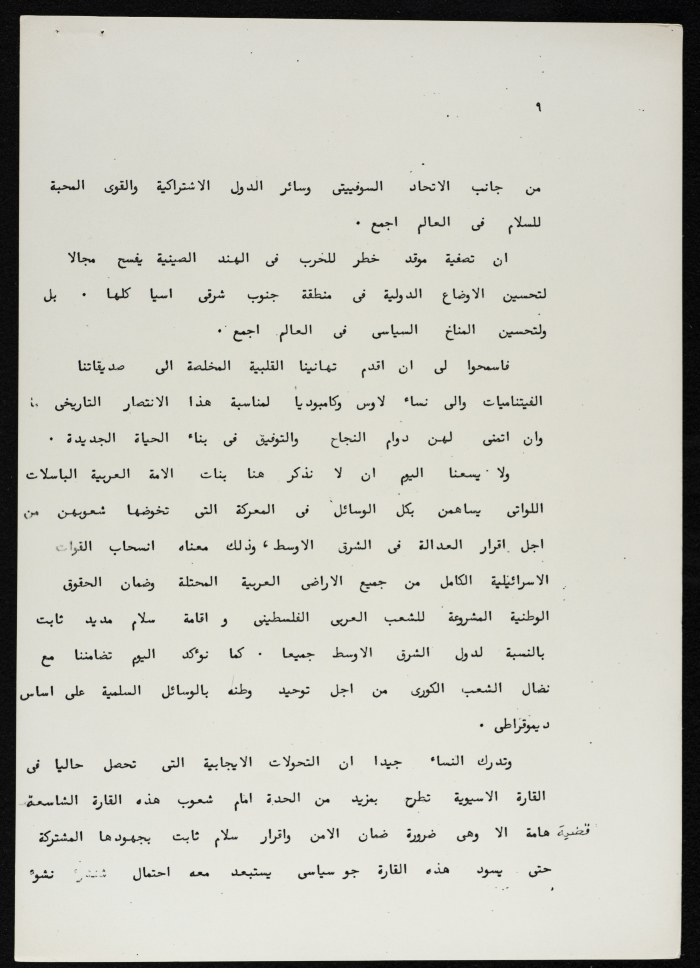 ٩
من جانب الاتحاد السوفييتى وسائر الدول الاشتراكية والقوى المحبة
للسلام فى العالم اجمع .
ان تصفية موقد خطر للحرب فى الهند الصينية يفسح مجالا
لتحسين الاوضاع الدولية فى منطقة جنوب شرقى اسيا كلها . بل
ولتحسين المناخ السياسى فى العالم اجمع .
فاسمحوا لى ان اقدم تهانينا القلبية المخلصة الى صديقاتنا
الفيتناميات والى نساء لاوس وكامبوديا لمناسبة هذا الانتصار التاريخى
وان اتمنى لهن دوام النجاح والتوفيق فى بناء الحياة الجديدة .
ولا يسعنا اليوم ان لا نذكر هنا بنات الامة العربية الباسلات
اللواتى يساهمن بكل الوسائل فى المعركة التى تخوضها شعوبهن من
اجل اقرار العدالة فى الشرق الاوسط ، وذلك معناه انسحاب القوات
الاسرائيلية الكامل من جميع الاراضى العربية المحتلة وضمان الحقوق
الوطنية المشروعة للشعب العربى الفلسطينى و اقامة سلام مديد ثابت
بالنسبة لدول الشرق الاوسط جميعا . كما نوٴكد اليوم تضامننا مع
نضال الشعب الكورى من اجل توحيد وطنه بالوسائل السلمية على اساس
ديموقراطى .
وتدرك النساء جيدا ان التحولات الايجابية التى تحصل حاليا فى
القارة الاسيوية تطرح بمزيد من الحدة امام شعوب هذه القارة الشاسعة
قضية هامة الا وهى ضرورة ضمان الامن واقرار سلام ثابت بجهودها المشتركة
حتى يسود هذه القارة جو سياسى يستبعد معه احتمال نشوء